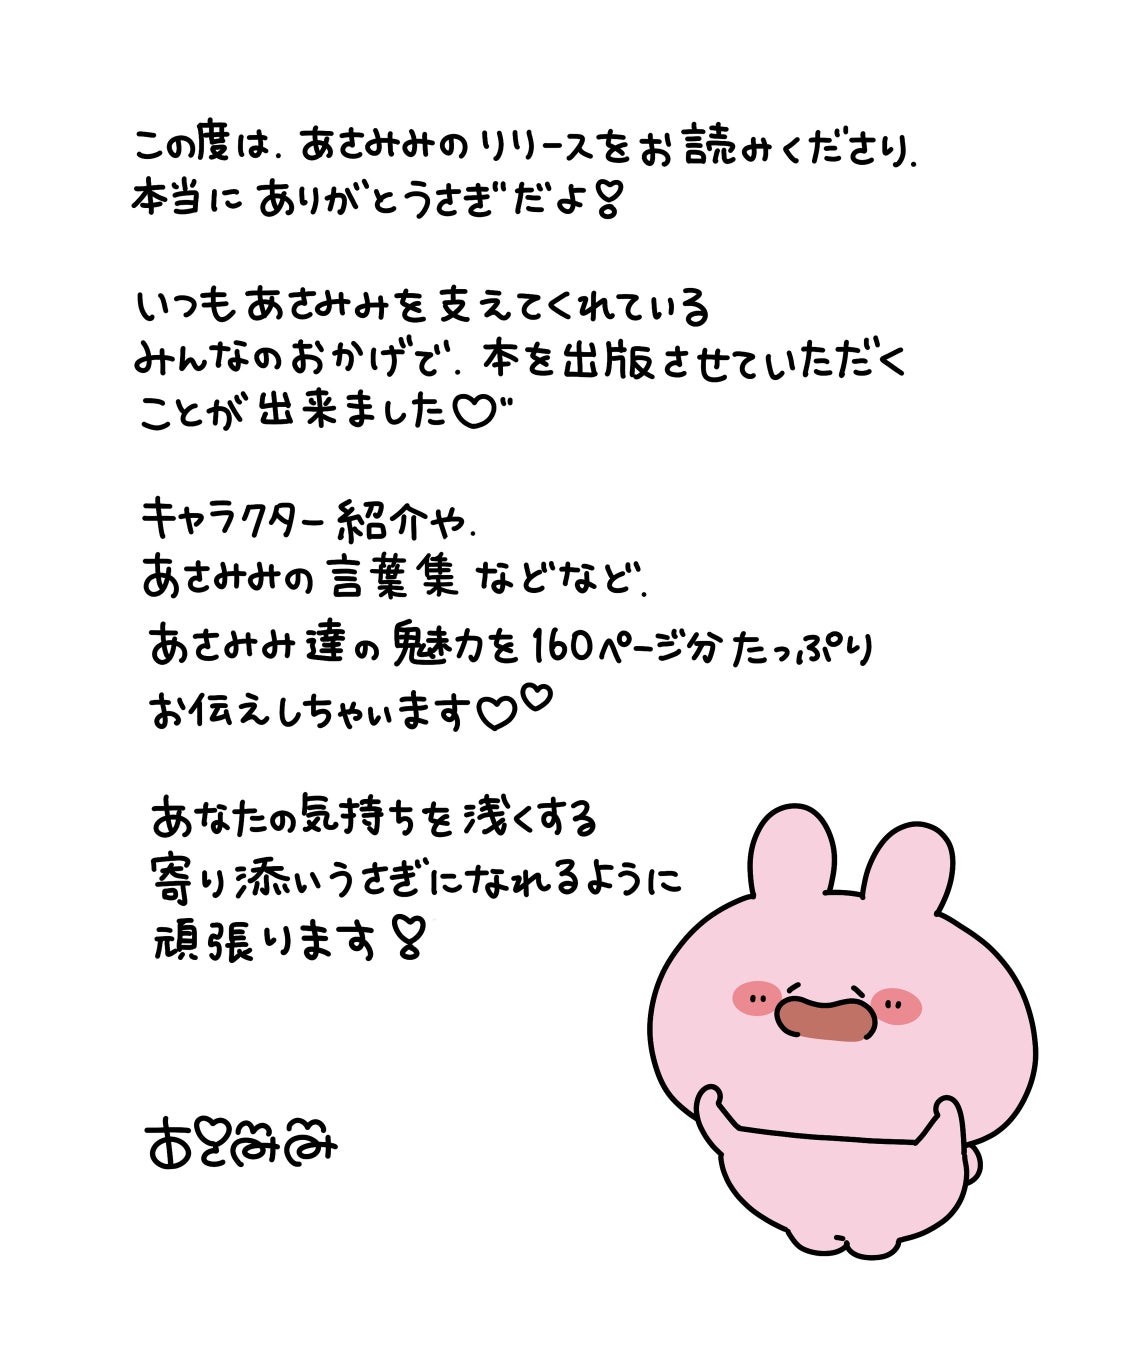 この度は、あさみみのリリースをお読みくださり、
本当にありがとうさぎだよ♡
いつもあさみみを支えてくれている
みんなのおかげで、本を出版させていただく
ことが出来ました♡"
キャラクター紹介や、
あさみみの言葉集などなど、
あさみみ達の魅力を160ページ分たっぷり
お伝えしちゃいます♡♡
あなたの気持ちを浅くする
寄り添いうさぎになれるように
頑張ります♡
あさみみ